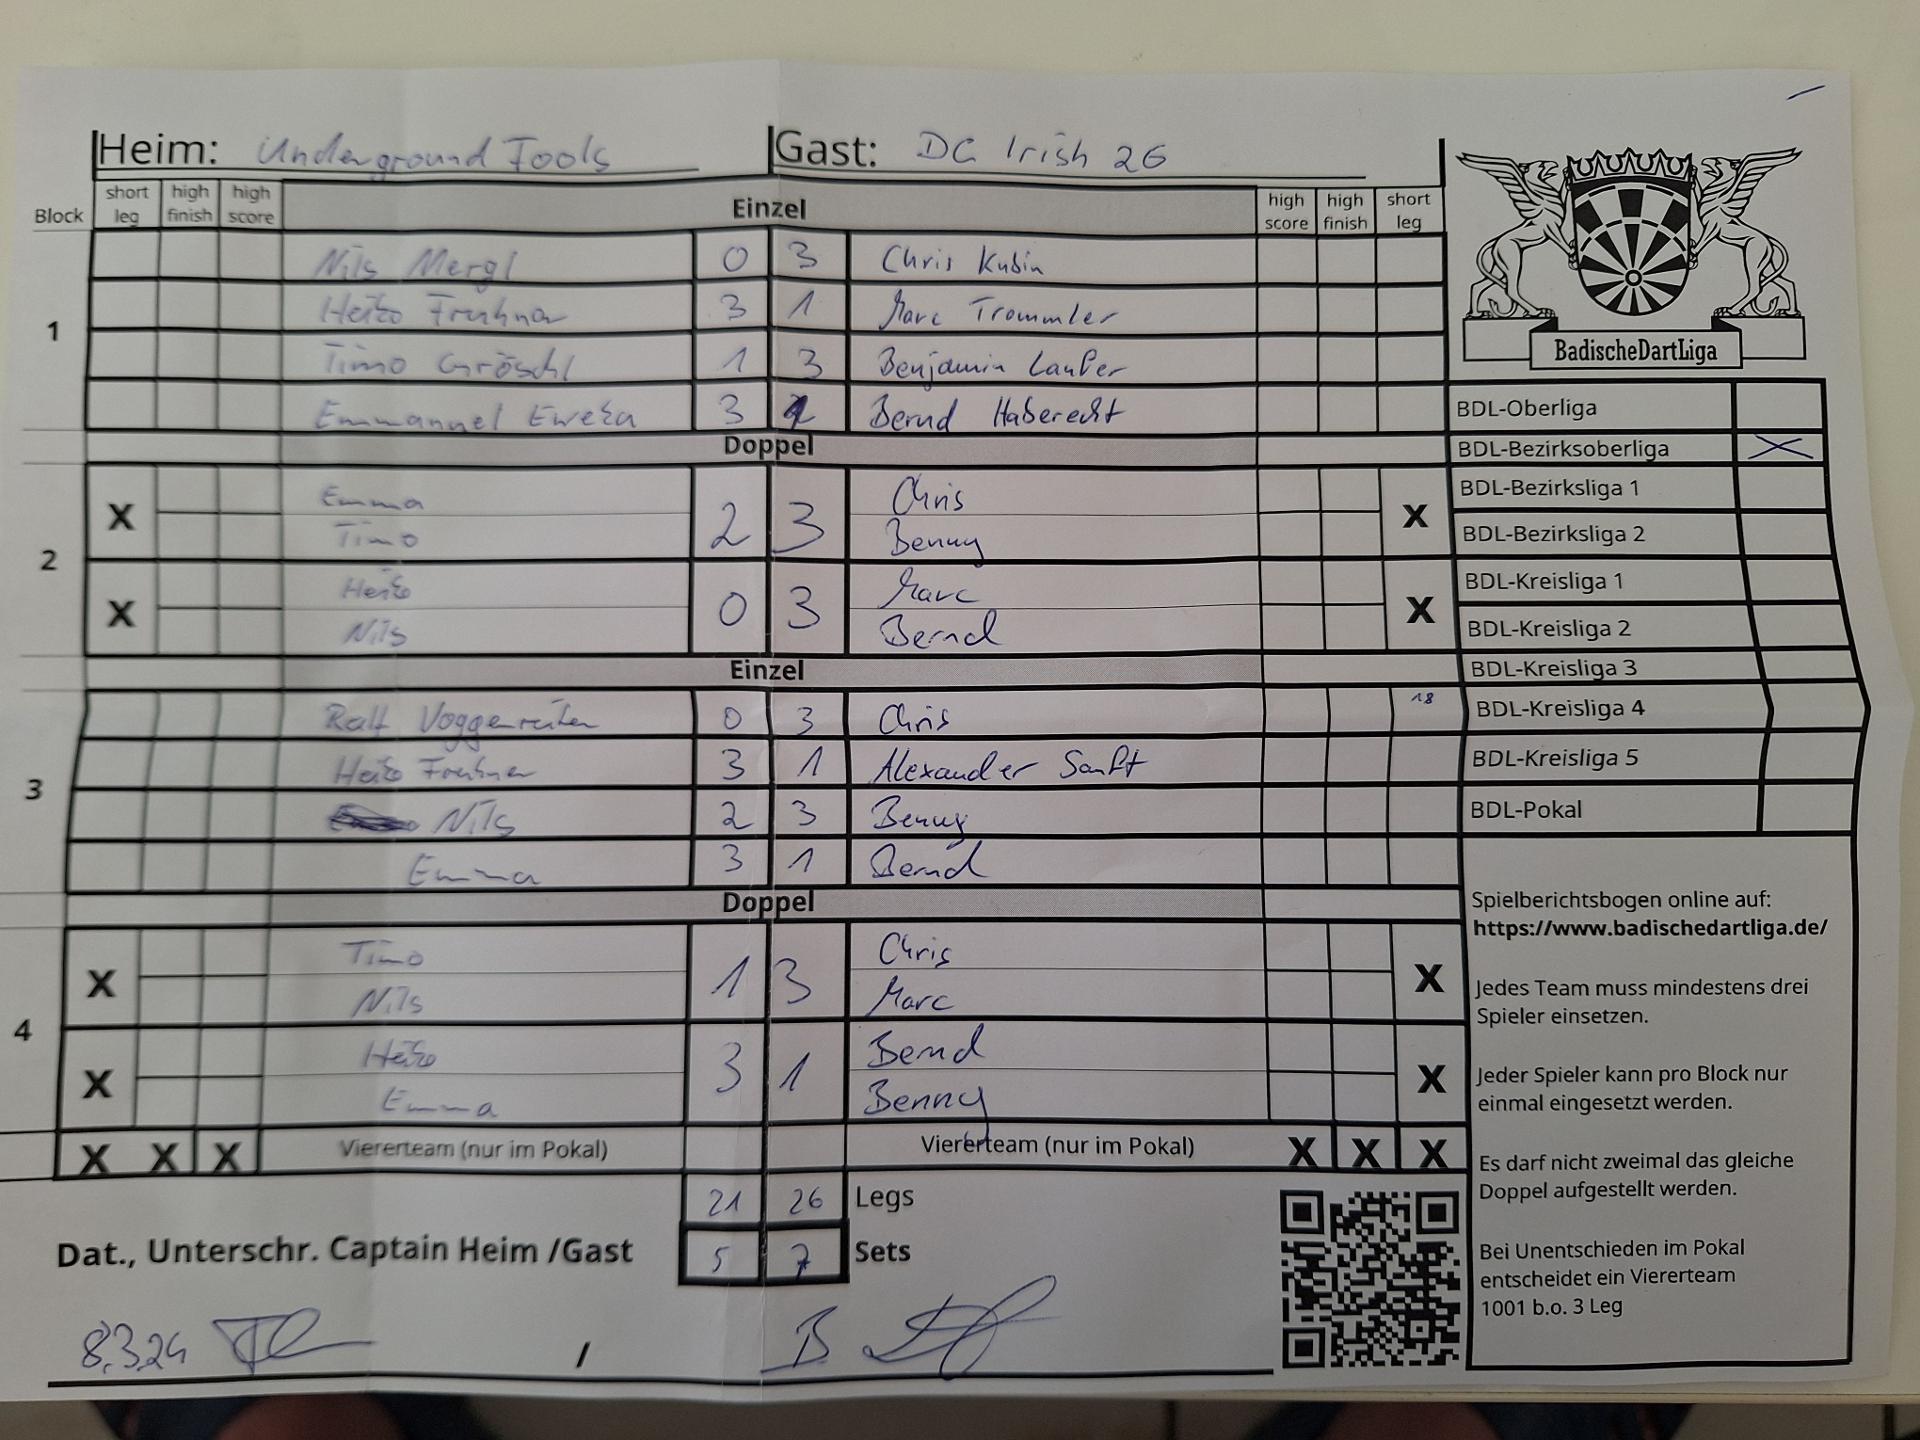 Heim: Underground Fools Gast: DC Irish 26
Block short leg high finish high score Einzel high score high finish short leg
1
Nils Mergl 0 3 Chris Kubin
Heiko Fruhner 3 1 Marc Trommler
Timo Gröschl 1 3 Benjamin Laufer
Emmanuel Eweka 3 Bernd Haberecht
Doppel
2
X Emma 2 3 Chris X
Timo Benny
X Heiko 0 3 Marc X
Nils Bernd
Einzel
3
Ralf Voggenreiter 0 3 Chris 18
Heiko Fruhner 3 1 Alexander Sanft
Nils 2 3 Benny
Emma 3 1 Bernd
Doppel
4
X Timo 1 3 Chris X
Nils Marc
X Heiko 3 1 Bernd X
Emma Benny
X X X Viererteam (nur im Pokal) Viererteam (nur im Pokal) X X X
21 26 Legs
5 7 Sets
Dat., Unterschr. Captain Heim /Gast
8.3.24 / B.
BadischeDartLiga
BDL-Oberliga
BDL-Bezirksoberliga X
BDL-Bezirksliga 1
BDL-Bezirksliga 2
BDL-Kreisliga 1
BDL-Kreisliga 2
BDL-Kreisliga 3
BDL-Kreisliga 4
BDL-Kreisliga 5
BDL-Pokal
Spielberichtsbogen online auf:
https://www.badischedartliga.de/
Jedes Team muss mindestens drei
Spieler einsetzen.
Jeder Spieler kann pro Block nur
einmal eingesetzt werden.
Es darf nicht zweimal das gleiche
Doppel aufgestellt werden.
Bei Unentschieden im Pokal
entscheidet ein Viererteam
1001 b.o. 3 Leg